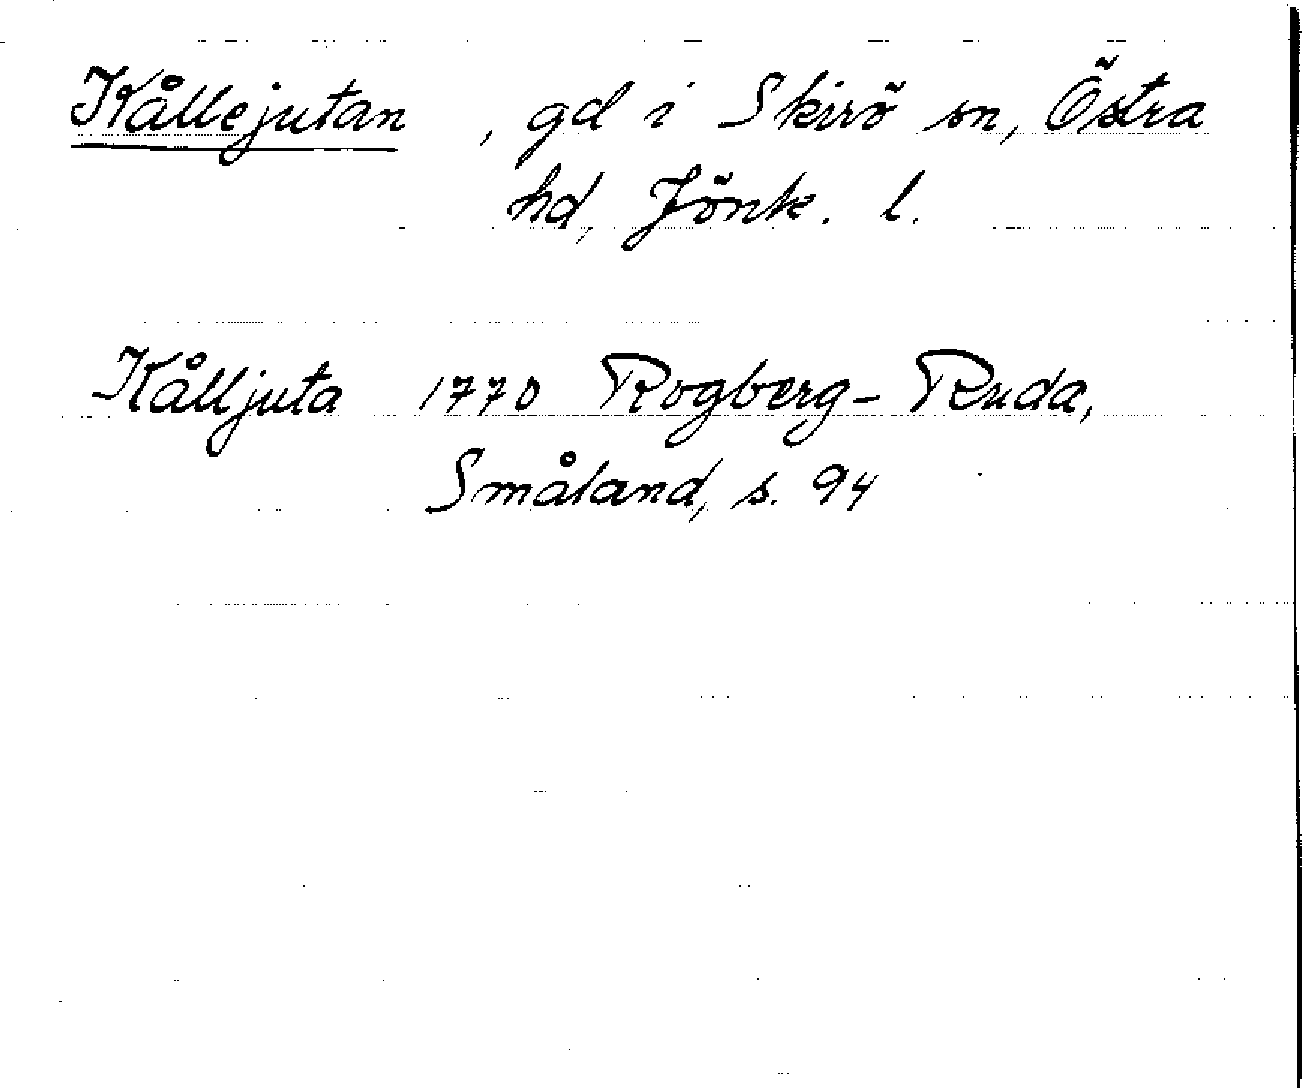 Kållejutan, gd i Skirö sn, Östra
hd, Jönk. l.
Kålljuta 1770 Rogberg-Ruda,
Småland, s. 94